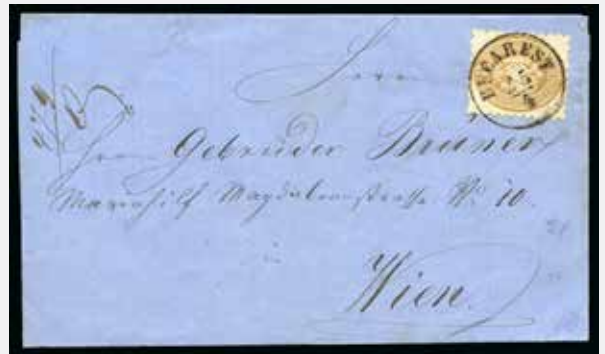 BUCAREST
Herrn
Herren Gebrüder Brüner
Mariahilf Magdalenenstraße Nr. 10.
Wien.